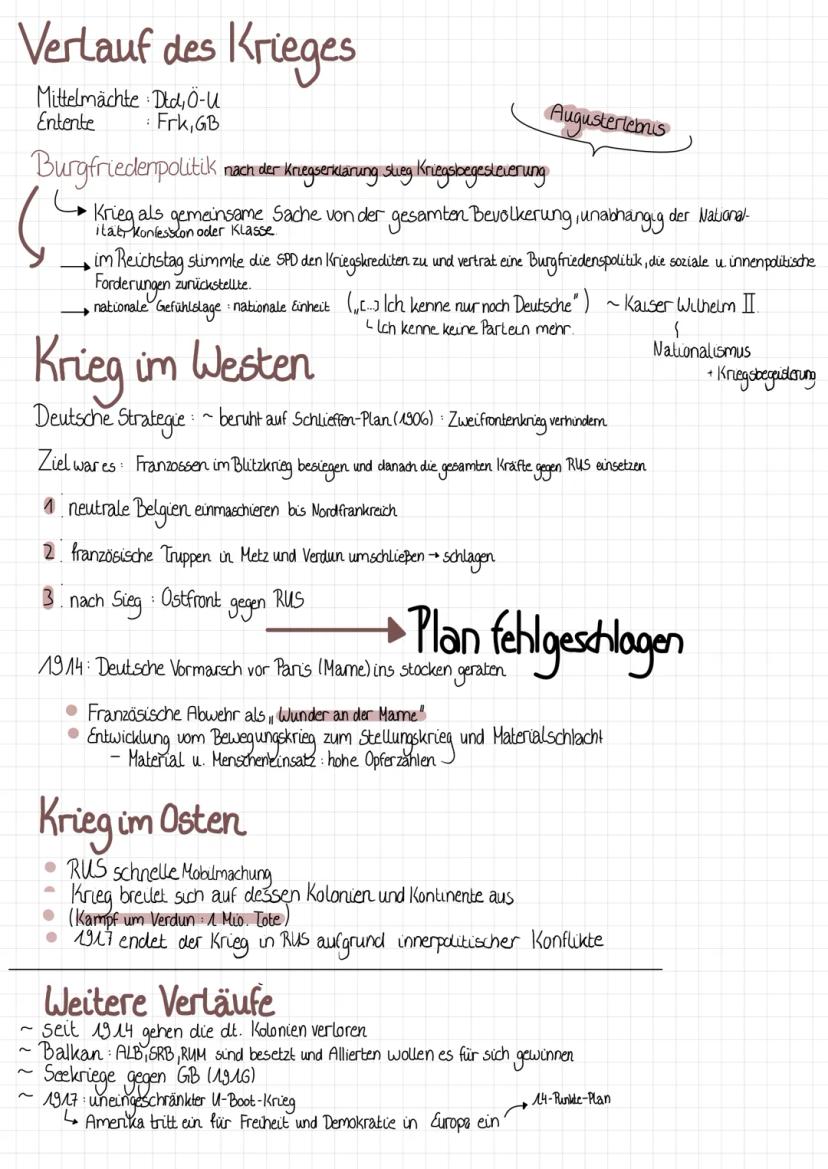 Verlauf des Krieges
Mittelmächte : Dtd, Ö-U
Entente : Frk, GB
Augusterlebnis
Burgfriedenpolitik nach der Kriegserklärung stieg Kriegsbegeisterung
Krieg als gemeinsame Sache von der gesamten Bevölkerung, unabhängig der National-
ität, Konfession oder Klasse.
→ im Reichstag stimmte die SPD den Kriegskrediten zu und vertrat eine Burgfriedenspolitik, die soziale u. innenpolitische
Forderungen zurückstellte.
→ nationale Gefühlslage : nationale Einheit („[...] Ich kenne nur noch Deutsche") ~ Kaiser Wilhelm II.
↳ Ich kenne keine Partein mehr.
Nationalismus
+ Kriegsbegeisterung
Krieg im Westen
Deutsche Strategie : ~ beruht auf Schlieffen-Plan (1906) : Zweifrontenkrieg verhindern
Ziel war es : Franzossen im Blitzkrieg besiegen und danach die gesamten Kräfte gegen RUS einsetzen
1. neutrale Belgien einmaschieren bis Nordfrankreich
2. französische Truppen in Metz und Verdun umschließen → schlagen
3. nach Sieg : Ostfront gegen RUS
Plan fehlgeschlagen
1914 : Deutsche Vormarsch vor Paris (Marne) ins stocken geraten
• Französische Abwehr als „Wunder an der Marne"
• Entwicklung vom Bewegungskrieg zum Stellungskrieg und Materialschlacht
– Material u. Menscheneinsatz : hohe Opferzahlen
Krieg im Osten
• RUS schnelle Mobilmachung
• Krieg breitet sich auf dessen Kolonien und Kontinente aus
• (Kampf um Verdun : 1 Mio. Tote)
• 1917 endet der Krieg in RUS aufgrund innerpolitischer Konflikte
Weitere Verläufe
~ seit 1914 gehen die dt. Kolonien verloren
~ Balkan : ALB, SRB, RUM sind besetzt und Allierten wollen es für sich gewinnen
~ Seekriege gegen GB (1916)
~ 1917 : uneingeschränkter U-Boot-Krieg
↳ Amerika tritt ein für Freiheit und Demokratie in Europa ein → 14-Punkte-Plan